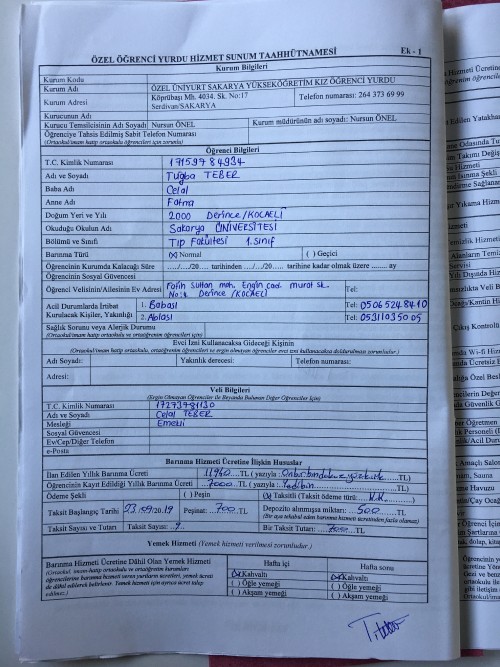 ÖZEL ÖĞRENCİ YURDU HİZMET SUNUM TAAHHÜTNAMESİ Ek - 1
Kurum Bilgileri
Kurum Kodu
Kurum Adı ÖZEL ÜNİYURT SAKARYA YÜKSEKÖĞRETİM KIZ ÖĞRENCİ YURDU
Kurum Adresi Köprübaşı Mh. 4034. Sk. No:17 Serdivan/SAKARYA Telefon numarası: 264 373 69 99
Kurucunun Adı
Kurucu Temsilcisinin Adı Soyadı Nursun ÖNEL Kurum müdürünün adı soyadı: Nursun ÖNEL
Öğrenciye Tahsis Edilmiş Sabit Telefon Numarası
(Ortaokul/imam hatip ortaokulu öğrencileri için zorunlu)
Öğrenci Bilgileri
T.C. Kimlik Numarası 17159784934
Adı ve Soyadı Tuğba TEBER
Baba Adı Celal
Anne Adı Fatma
Doğum Yeri ve Yılı 2000 Derince/KOCAELİ
Okuduğu Okulun Adı Sakarya ÜNİVERSİTESİ
Bölümü ve Sınıfı Tıp Fakültesi 1.sınıf
Barınma Türü (X) Normal ( ) Geçici
Öğrencinin Kurumda Kalacağı Süre …./…./20…. tarihinden …./…./20…. tarihine kadar olmak üzere ........ ay
Öğrencinin Sosyal Güvencesi
Öğrenci Velisinin/Ailesinin Ev Adresi Fatih Sultan mah. Engin cad. murat sk. Derince/KOCAELİ Tel:
Acil Durumlarda İrtibat Kurulacak Kişiler, Yakınlığı 1. Babası Tel: 0506 524 84 10
2. Ablası Tel: 05311035005
Sağlık Sorunu veya Alerjik Durumu
(Ortaokul/imam hatip ortaokulu öğrencileri için)
Evci İzni Kullanacaksa Gideceği Kişinin
(Ortaokul/imam hatip ortaokulu, ortaöğretim öğrencileri ve ergin olmayan öğrenciler evci izni kullanacaksa doldurulması zorunludur.)
Adı Soyadı: Yakınlık derecesi: Telefon numarası:
Adresi:
Veli Bilgileri
(Ergin Olmayan Öğrenciler ile Beyanda Bulunan Diğer Öğrenciler İçin)
T.C. Kimlik Numarası 17273781130
Adı ve Soyadı Celal TEBER
Mesleği Emekli
Sosyal Güvencesi
Ev/Cep/Diğer Telefon
e-Posta
Barınma Hizmeti Ücretine İlişkin Hususlar
İlan Edilen Yıllık Barınma Ücreti 11960 TL ( yazıyla : TL)
Öğrencinin Kayıt Edildiği Yıllık Barınma Ücreti 7000 TL ( yazıyla : Yedibin TL)
Ödeme Şekli ( ) Peşin (X) Taksitli (Taksit ödeme türü: K.K. )
Taksit Başlangıç Tarihi 03/09/2019 Peşinat: 700 TL Depozito alınmışsa miktarı: 500 TL)
(Bir aya tekabül eden barınma hizmeti ücretinden fazla olamaz)
Taksit Sayısı ve Tutarı Taksit Sayısı: 9 Bir Taksit Tutarı: 700 TL
Yemek Hizmeti (Yemek hizmeti verilmesi zorunludur.)
Barınma Hizmeti Ücretine Dâhil Olan Yemek Hizmeti Hafta içi Hafta sonu
(Ortaokul, imam-hatip ortaokulu ve ortaöğretim kurumları öğrencilerine barınma hizmeti veren yurtların ücretleri, yemek ücreti de dâhil edilerek belirlenir. Yemek için ayrıca ücret talep edilmez.)
(X) Kahvaltı (X) Kahvaltı
( ) Öğle yemeği ( ) Öğle yemeği
( ) Akşam yemeği ( ) Akşam yemeği